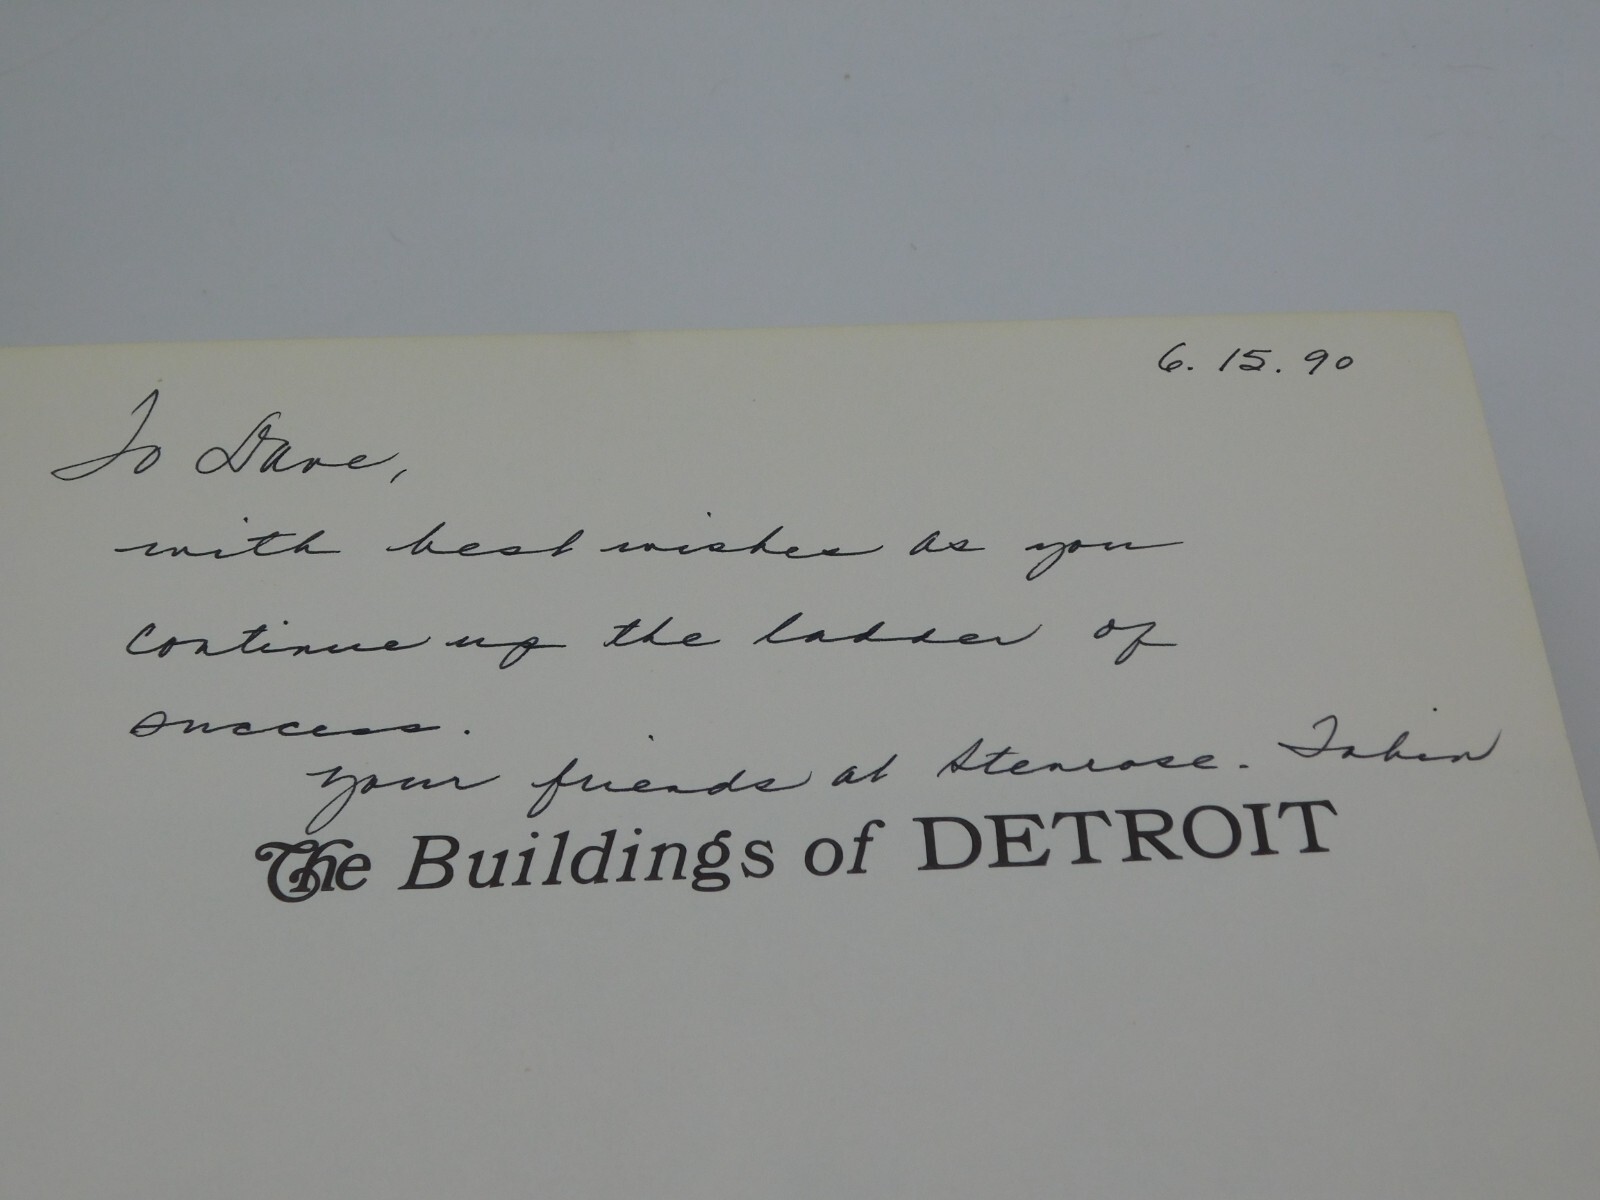 6. 15. 90
To Dave,
with best wishes as you
continue up the ladder of
success.
your friends at Stenrose. Tobin
The Buildings of DETROIT